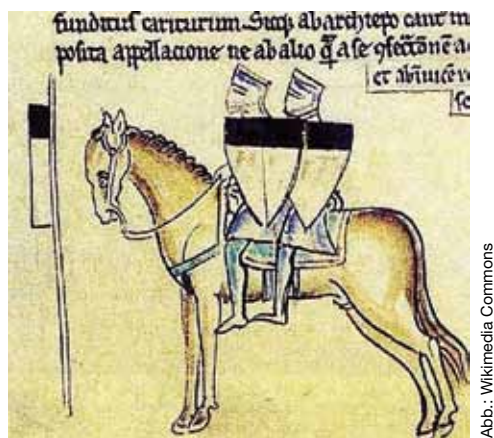 funditus cariturum. Sicq; ab archiepo cant in
posita appellacione ne ab alio q̃ a se
et abinuicē
Abb.: Wikimedia Commons